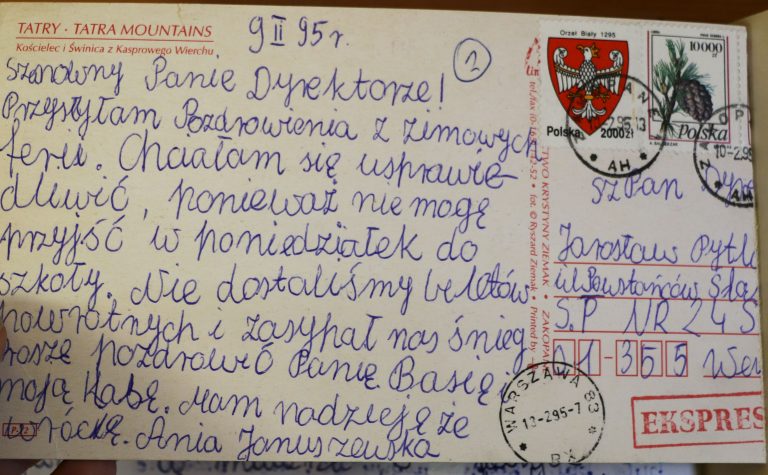 TATRY · TATRA MOUNTAINS
Kościelec i Świnica z Kasprowego Wierchu
9 II 95 r.
2
Szanowny Panie Dyrektorze!
Przysyłam Pozdrowienia z zimowych
ferii. Chciałam się usprawie-
dliwić, ponieważ nie mogę
przyjść w poniedziałek do
szkoły. Nie dostaliśmy biletów
powrotnych i zasypał nas śnieg
Proszę pozdrowić Panię Basię i
moją klasę. Mam nadzieję że
wrócę. Ania Januszewska
Orzeł Biały 1295
Polska 2000 zł
10000 zł
Polska
AH
10-2.95
AH
TWO KRYSTYNY ZIEMAK • ZAKOPA
Fot. © Ryszard Ziemak • Printed by
Sz Pan Dyr
Jarosław Pytl
ul. Powstańców Śla
S.P NR 245
01-355 War
WARSZAWA 83
10-2.95-7
BX
EKSPRES